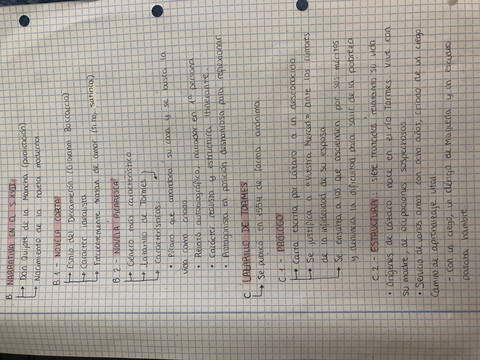 B. NARRATIVA EN EL S. XVII
→ Don Quijote de la Mancha (parodia)
→ Nacimiento de la novela moderna.
B.1 - NOVELA CORTA
→ Estilo del Decamerón (Giovanni Boccaccio)
→ Carácter realista
→ Frecuentemente trama de amor (lírico, satírica)
B.2 - NOVELA PICARESCA
→ Género más característico
→ Lazarillo de Tormes
→ Características:
• Pícaro que abandona su casa y se busca la
vida como criado
• Relato autobiográfico, narrador en 1ª persona
• Carácter realista y estructura itinerante.
• Protagonista en posición deshonrosa para reflexionar
C. LAZARILLO DE TORMES
→ Se publicó en 1554 de forma anónima
C.1 - PRÓLOGO
→ Carta escrita por Lázaro a un desconocido
→ Se justifica a «Vuestra Merced» ante los rumores
de la infidelidad de su esposa
→ Se ensalza a los que ascienden por sus méritos
y denuncia la dificultad para salir de la pobreza
C.2 - ESTRUCTURA: siete tratados relatando su vida
• Orígenes de Lázaro: nace en el río Tormes. Vive con
su madre de ocupaciones sospechosas
• Servicio de varios amos: con ocho años, criado de un ciego.
Camino de aprendizaje vital
- Con un ciego, un clérigo de Maqueda y un escudero
pasaba hambre